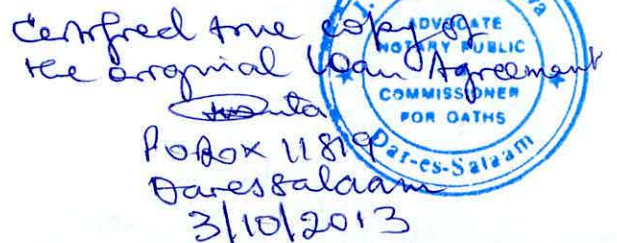 Certified true copy of
the original Loan Agreement
P O Box 11819
Dar es salaam
3/10/2013
ADVOCATE
NOTARY PUBLIC
COMMISSIONER
FOR OATHS
Dar-es-Salaam